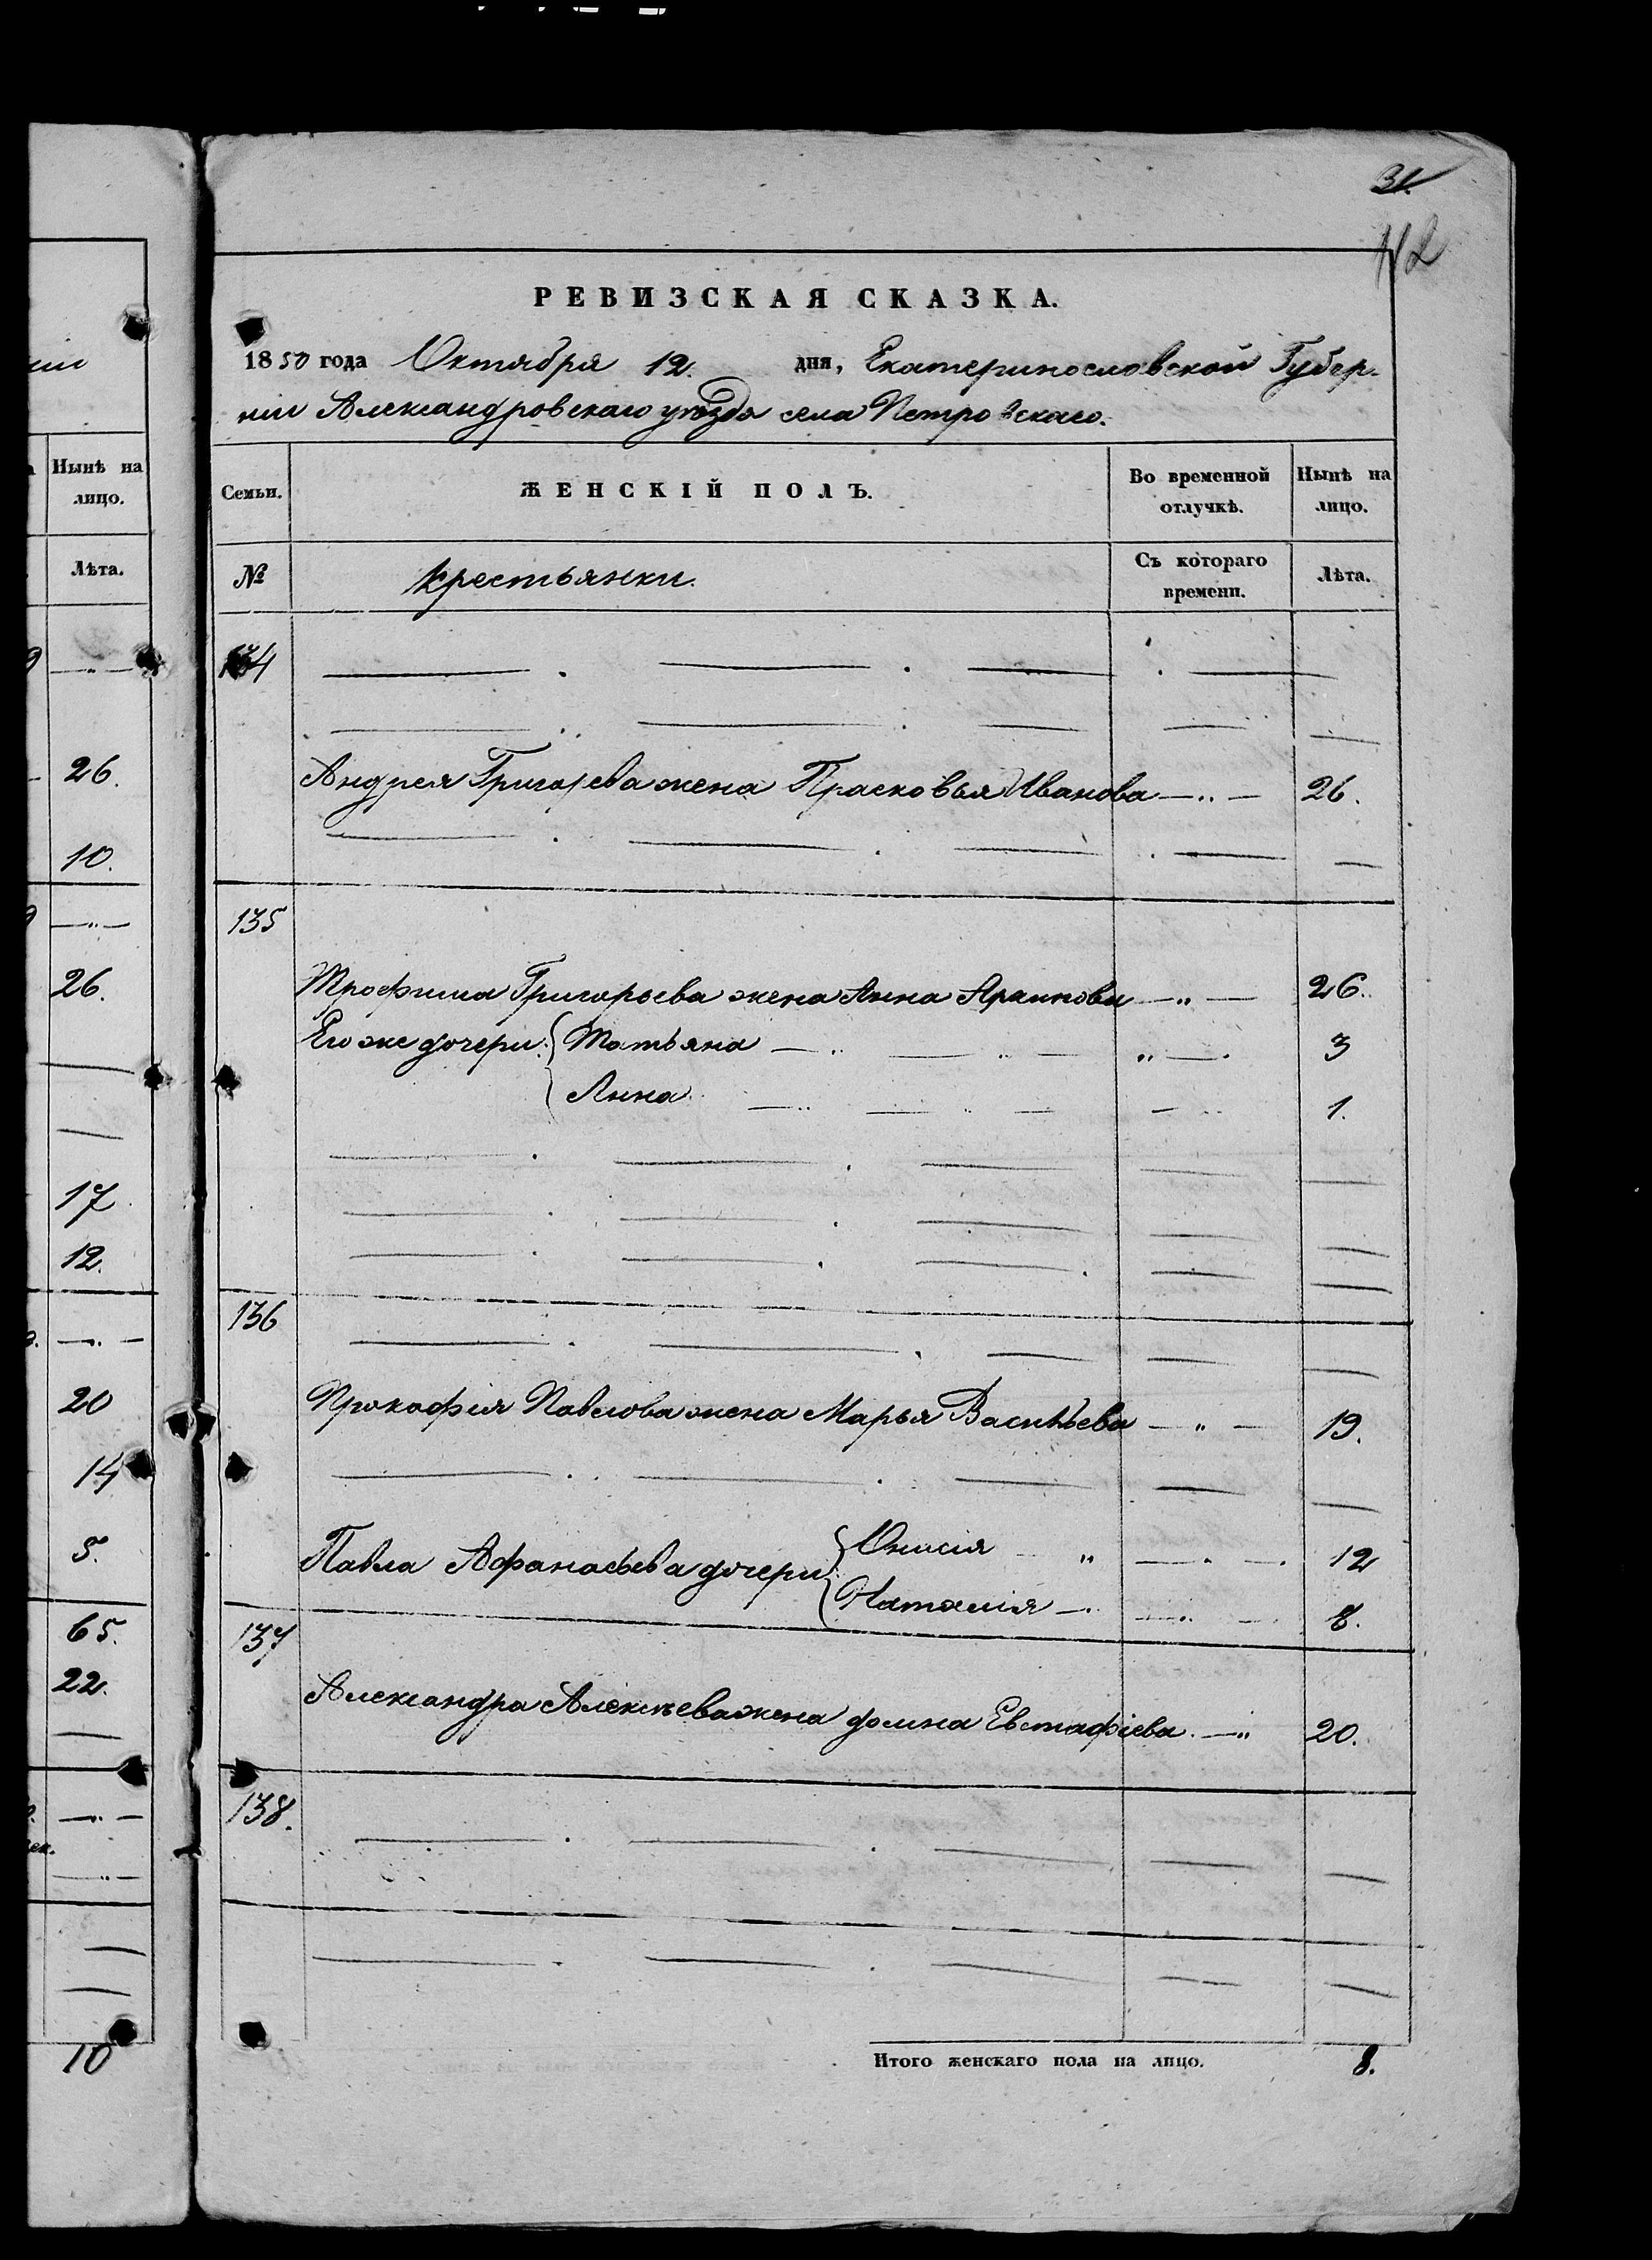 31.
РЕВИЗСКАЯ СКАЗКА.
1850 года Октября 12. дня, Екатеринославской Губер-
нии Александровскаго уѣзда села Петровскаго.
Семьи. ЖЕНСКІЙ ПОЛЪ. Во временной отлучкѣ. Нынѣ на лицо.
№ крестьянки. Съ котораго времени. Лѣта.
134
Андрея Григорьева жена Прасковья Иванова — „ — 26.
135
Трофима Григорьева жена Анна — „ — 26.
Его же дочери: Татьяна — „ — 3
Анна 1.
136
Прокофія Павлова жена Марья Васильева — „ — 19.
Павла Афанасьева дочери 12
Наталія — 8.
137
Александра Алексѣева жена домна Евстафіева. — „ 20.
138.
Итого женскаго пола на лицо. 8.
Нынѣ на
лицо.
Лѣта.
26.
10.
26.
17
12.
20
14
5.
65.
22.
10